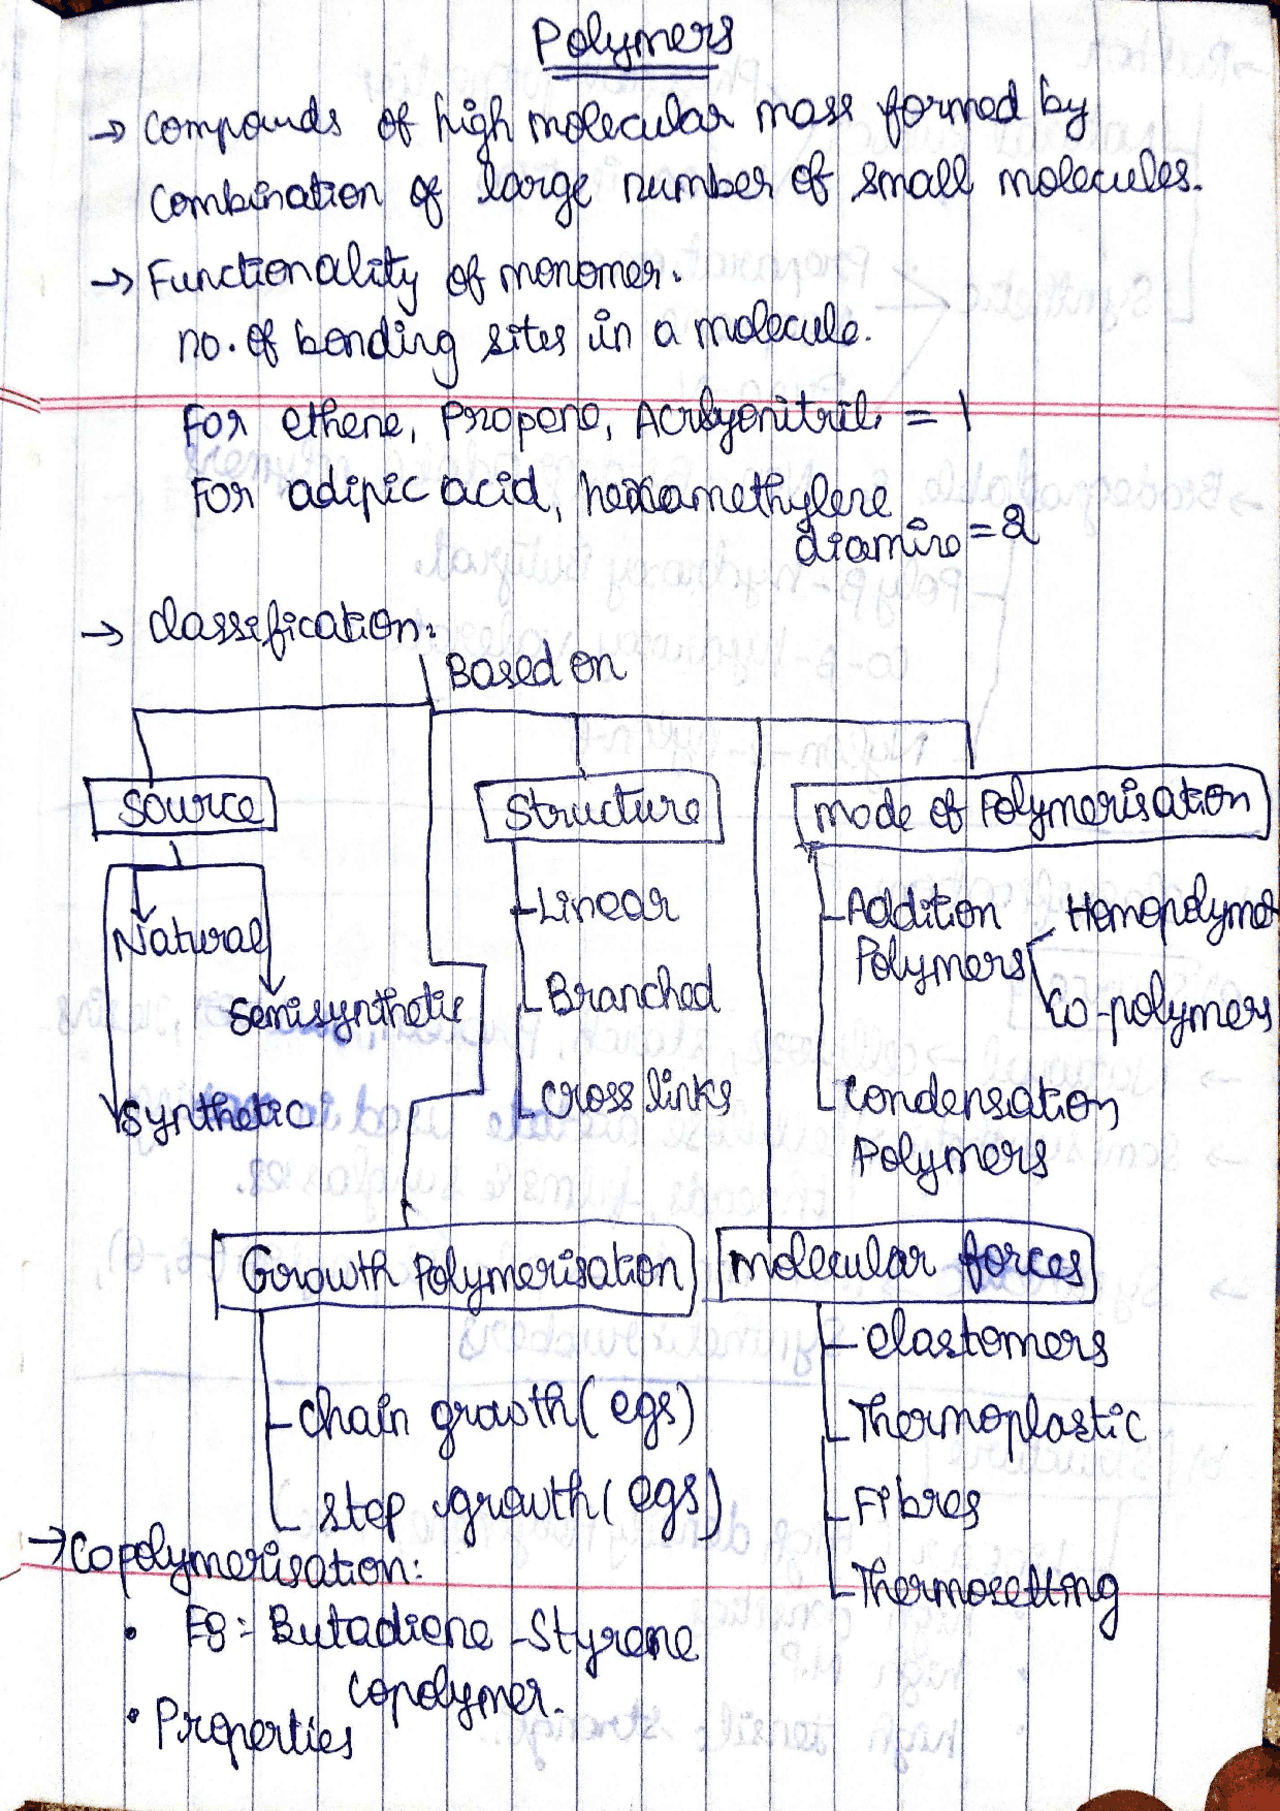 Polymers
→ Compounds of high molecular mass formed by
combination of large number of small molecules.
→ Functionality of monomer.
no. of bonding sites in a molecule.
For ethene, Propene, Acrlyonitrile = 1
For adipic acid, hexamethylene
diamine = 2
→ Classification:
Based on
Source
Structure
Mode of Polymerisation
Natural
Semisynthetic
Synthetic
Linear
Branched
Cross links
Addition
Polymers
Homopolymer
Co-polymers
Condensation
Polymers
Growth Polymerisation
Chain growth (egs)
Step growth (egs)
Molecular forces
elastomers
Thermoplastic
Fibres
Thermosetting
→ Copolymerisation:
• Eg: Butadiene - Styrene
Copolymer.
• Properties